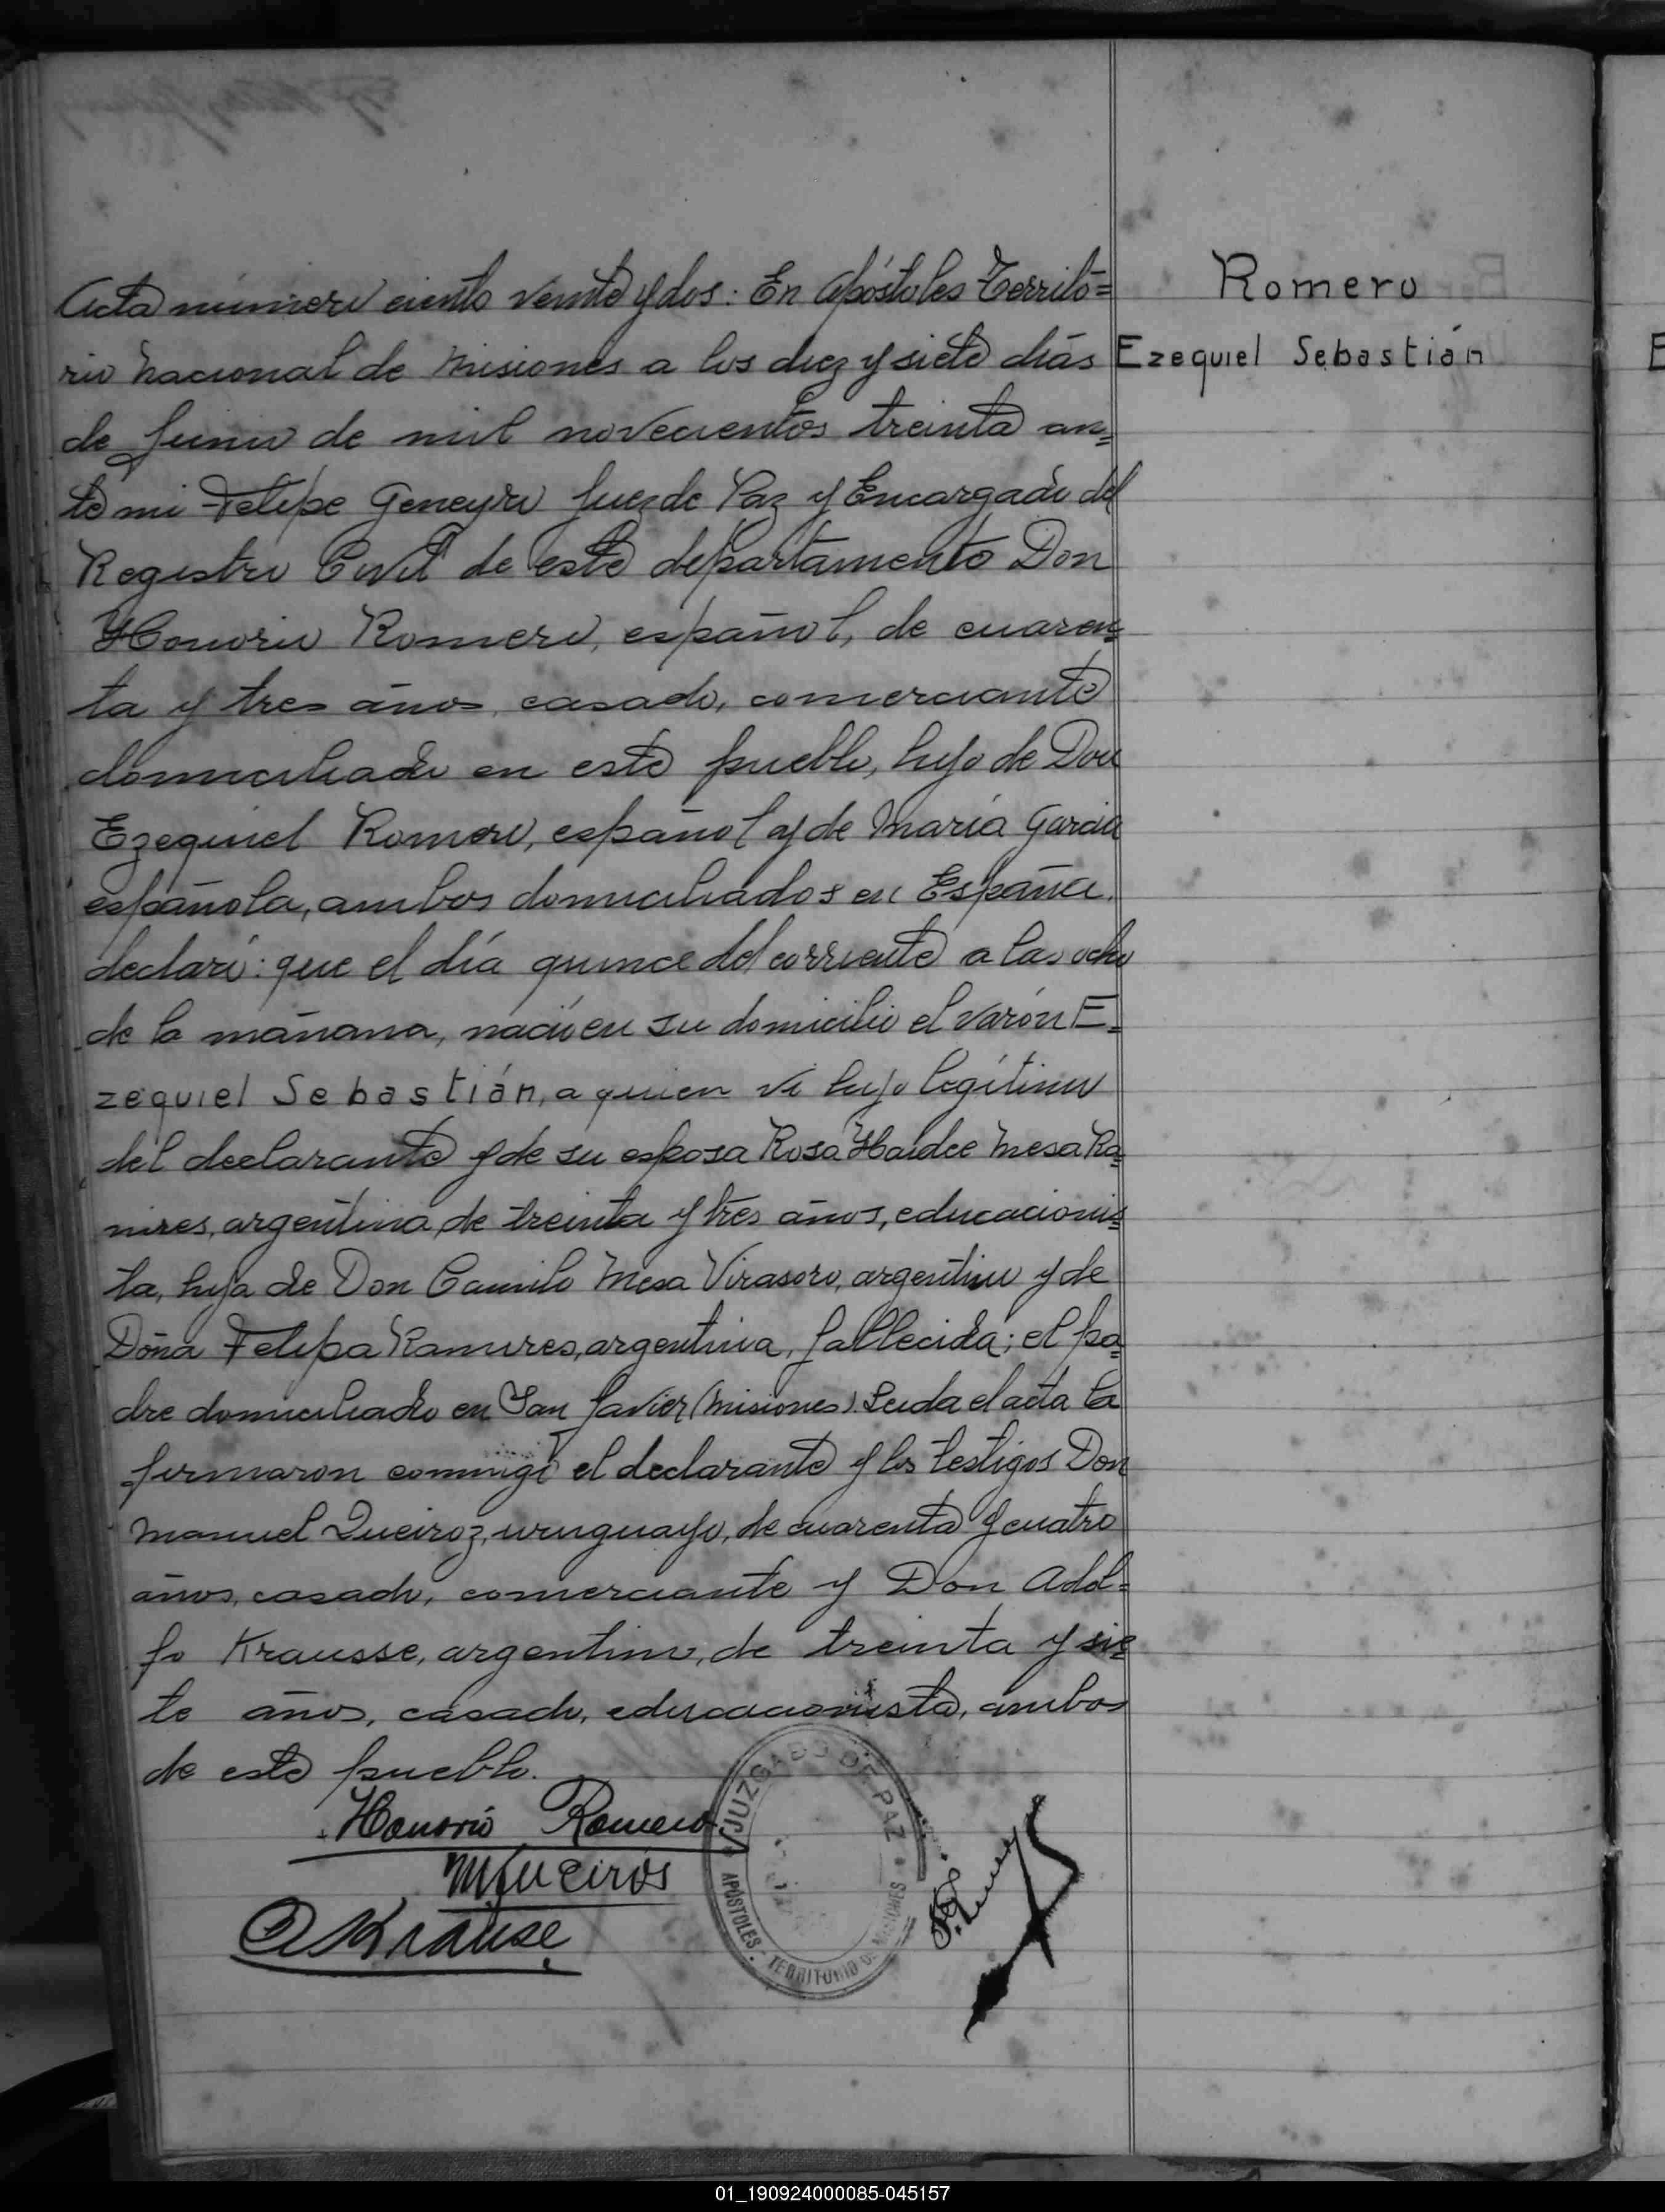 Romero
Ezequiel Sebastián
Acta número ciento veinte y dos: En Apóstoles Territo=
rio Nacional de Misiones a los diez y siete días
de Junio de mil novecientos treinta an=
te mi Felipe Geneyro Juez de Paz y Encargado del
Registro Civil de este departamento Don
Honorio Romero, español, de cuaren=
ta y tres años, casado, comerciante
domiciliado en este pueblo, hijo de Don
Ezequiel Romero, español y de María Garcia
española, ambos domiciliados en España.
declaró: que el día quince del corriente a las ocho
de la mañana, nació en su domicilio el varón E=
zequiel Sebastián, a quien vi hijo legítimo
del declarante y de su esposa Rosa Haidee Mesa Ra=
mires, argentina, de treinta y tres años, educacionis=
ta, hija de Don Camilo Mesa Virasoro, argentino y de
Doña Felipa Ramires, argentina, fallecida; el pa=
dre domiciliado en San Javier (Misiones). Leida el acta la
firmaron conmigo el declarante y los testigos Don
Manuel Queiroz, uruguayo, de cuarenta y cuatro
años, casado, comerciante y Don Adol=
fo Krausse, argentino, de treinta y sie=
te años, casado, educacionista, ambos
de este pueblo.
Honorio Romero
MQueirós
AKrause
JUZGADO DE PAZ
APOSTOLES - TERRITORIO DE MISIONES
01_190924000085-045157